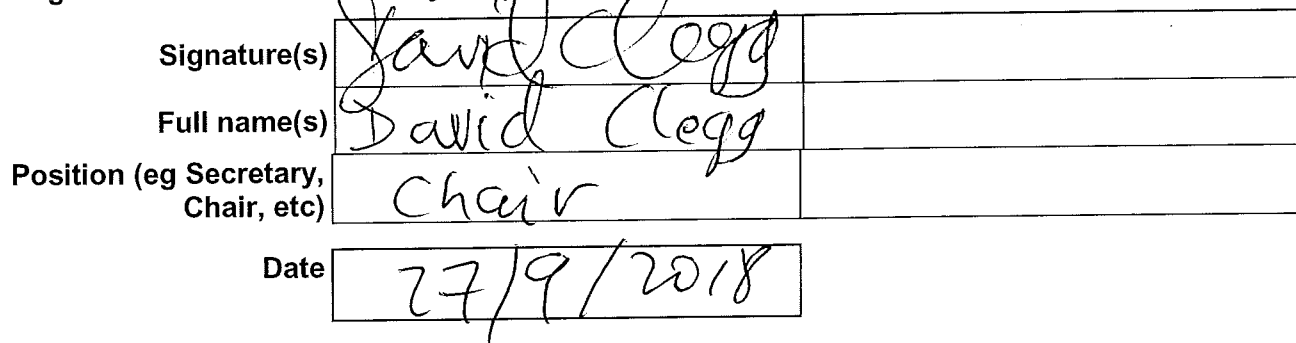 Signature(s) David Clegg
Full name(s) David Clegg
Position (eg Secretary,
Chair, etc) Chair
Date 27/9/2018